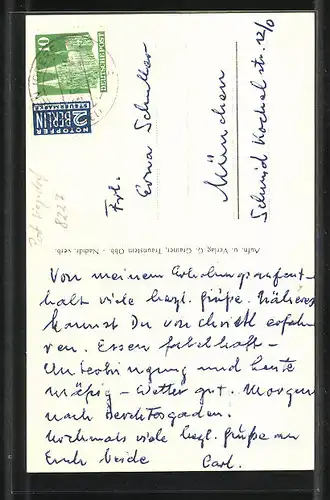 DEUTSCHE POST
10
NOTOPFER
2 BERLIN
STEUERMARKE
Frl.
Erna Schuller
München
Schmid Kochel str. 12/0
8222
Aufn. u. Verlag G. Grauner, Traunstein Obb. Nachdr. verb.
Von meinem Erholungsaufent-
halt viele herzl. Grüße. Näheres
kannst Du von erfah-
ren. Essen fabelhaft –
Unterbringung und Leute
mäßig – Wetter gut. Morgen
nach Berchtesgaden.
Nochmals viele herzl. Grüße an
Euch beide Carl.